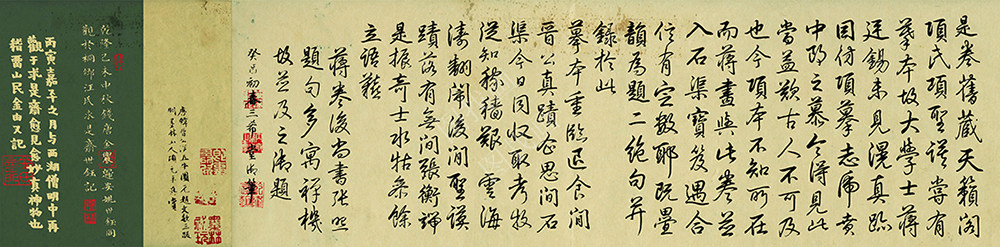 是卷舊藏天籟閣
項氏項聖謨嘗有
摹本故大學士蔣
廷錫未見滉真跡
因仿項摹志虎賁
中郎之慕今得見此
當益歎古人不可及
也今項本不知所在
而蔣畫與此卷並
入石渠寶笈遇合
信有定數耶既疊
韻為題二絕句并
錄於此
摹本重臨退食間
晉公真蹟企思間石
渠今日因收取考牧
從知稼穡艱雲海
濤翻鬧後閒聖謨
蹟落有無間張衡歸
是振奇士水牯紫餘
立語難
蔣卷後尚書張照
題句多寓禪機
故並及之御題
癸酉初春三希堂御筆
乾隆乙未中秋錢唐金農
觀於桐鄉汪氏求是齋世鈺記
丙寅嘉平之月與西湖僧明中再
觀于求是齋愈見愈妙真神物也
稽留山民金由又記